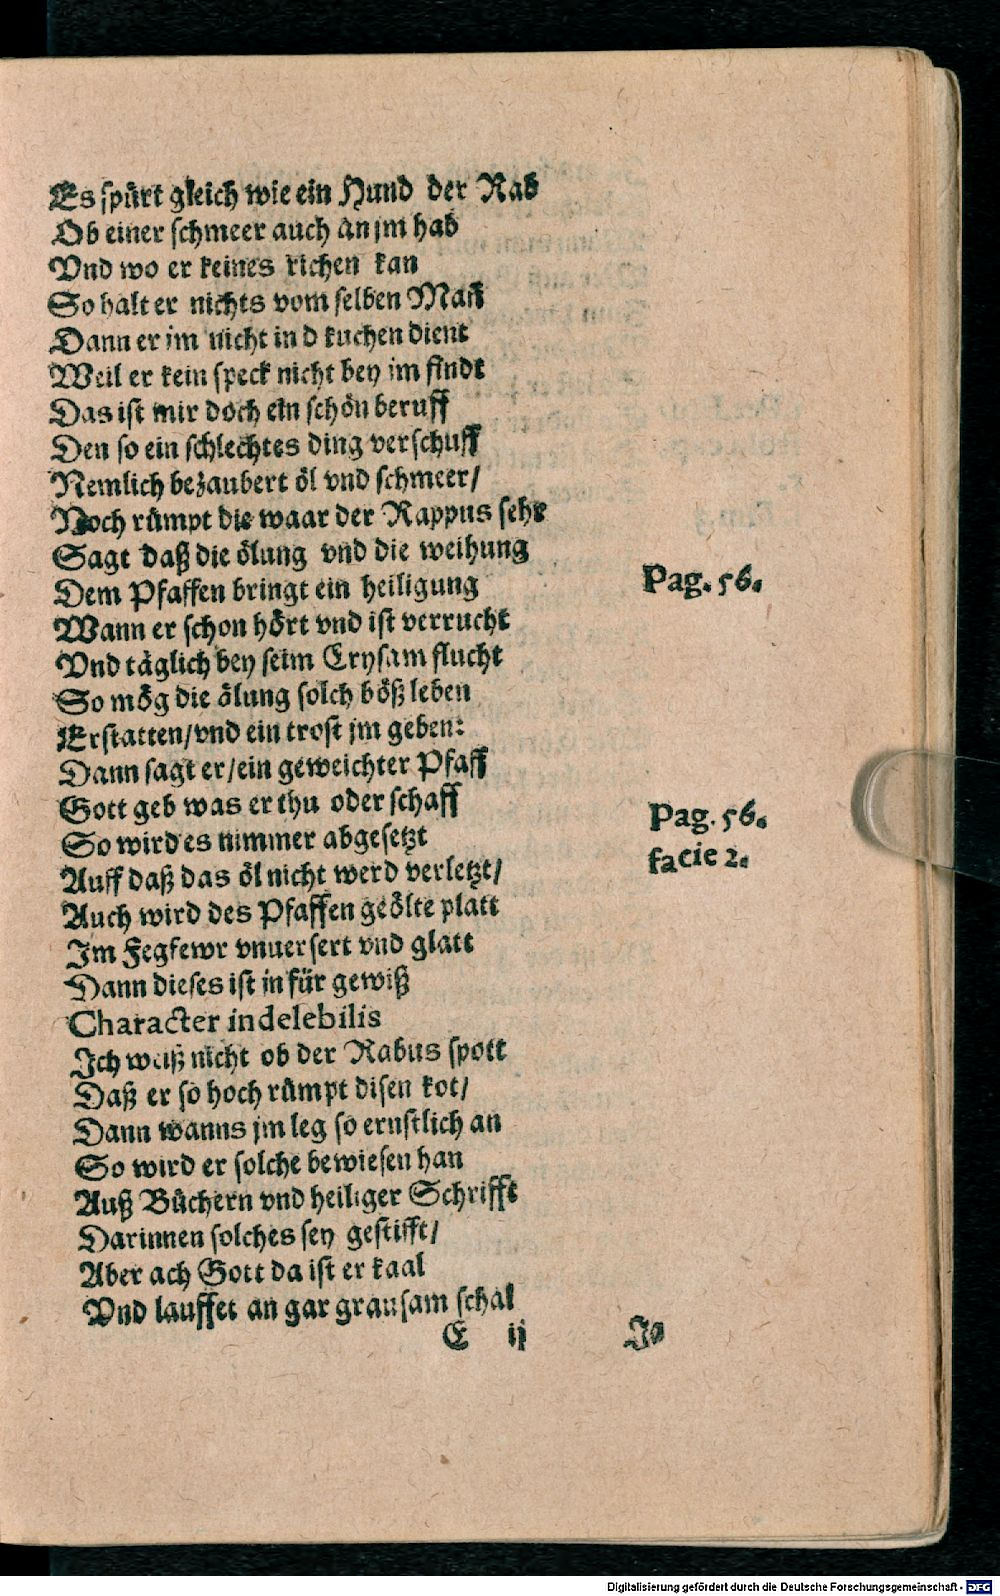 Es spürt gleich wie ein Hund der Rab
Ob einer schmeer auch an jm hab
Vnd wo er keines richen kan
So halt er nichts vom selben Mañ
Dann er im nicht in d kuchen dient
Weil er kein speck nicht bey im findt
Das ist mir doch ein schön beruff
Den so ein schlechtes ding verschuff
Nemlich bezaubert öl vnd schmeer/
Noch rümpt die waar der Rappus sehr
Sagt daß die ölung vnd die weihung
Dem Pfaffen bringt ein heiligung
Pag. 56.
Wann er schon hört vnd ist verrucht
Vnd täglich bey seim Crysam flucht
So mög die ölung solch böß leben
Erstatten/vnd ein trost jm geben:
Dann sagt er/ein geweichter Pfaff
Gott geb was er thu oder schaff
Pag. 56.
So wird es nimmer abgesetzt
facie 2.
Auff daß das öl nicht werd verletzt/
Auch wird des Pfaffen geölte platt
Im Fegfewr vnuersert vnd glatt
Dann dieses ist in für gewiß
Character indelebilis
Ich weiß nicht ob der Rabus spott
Daß er so hoch rümpt disen kot/
Dann wanns jm leg so ernstlich an
So wird er solche bewiesen han
Auß Büchern vnd heiliger Schrifft
Darinnen solches sey gestifft/
Aber ach Gott da ist er kaal
Vnd lauffet an gar grausam schal
E ij Ja
Digitalisierung gefördert durch die Deutsche Forschungsgemeinschaft - DFG